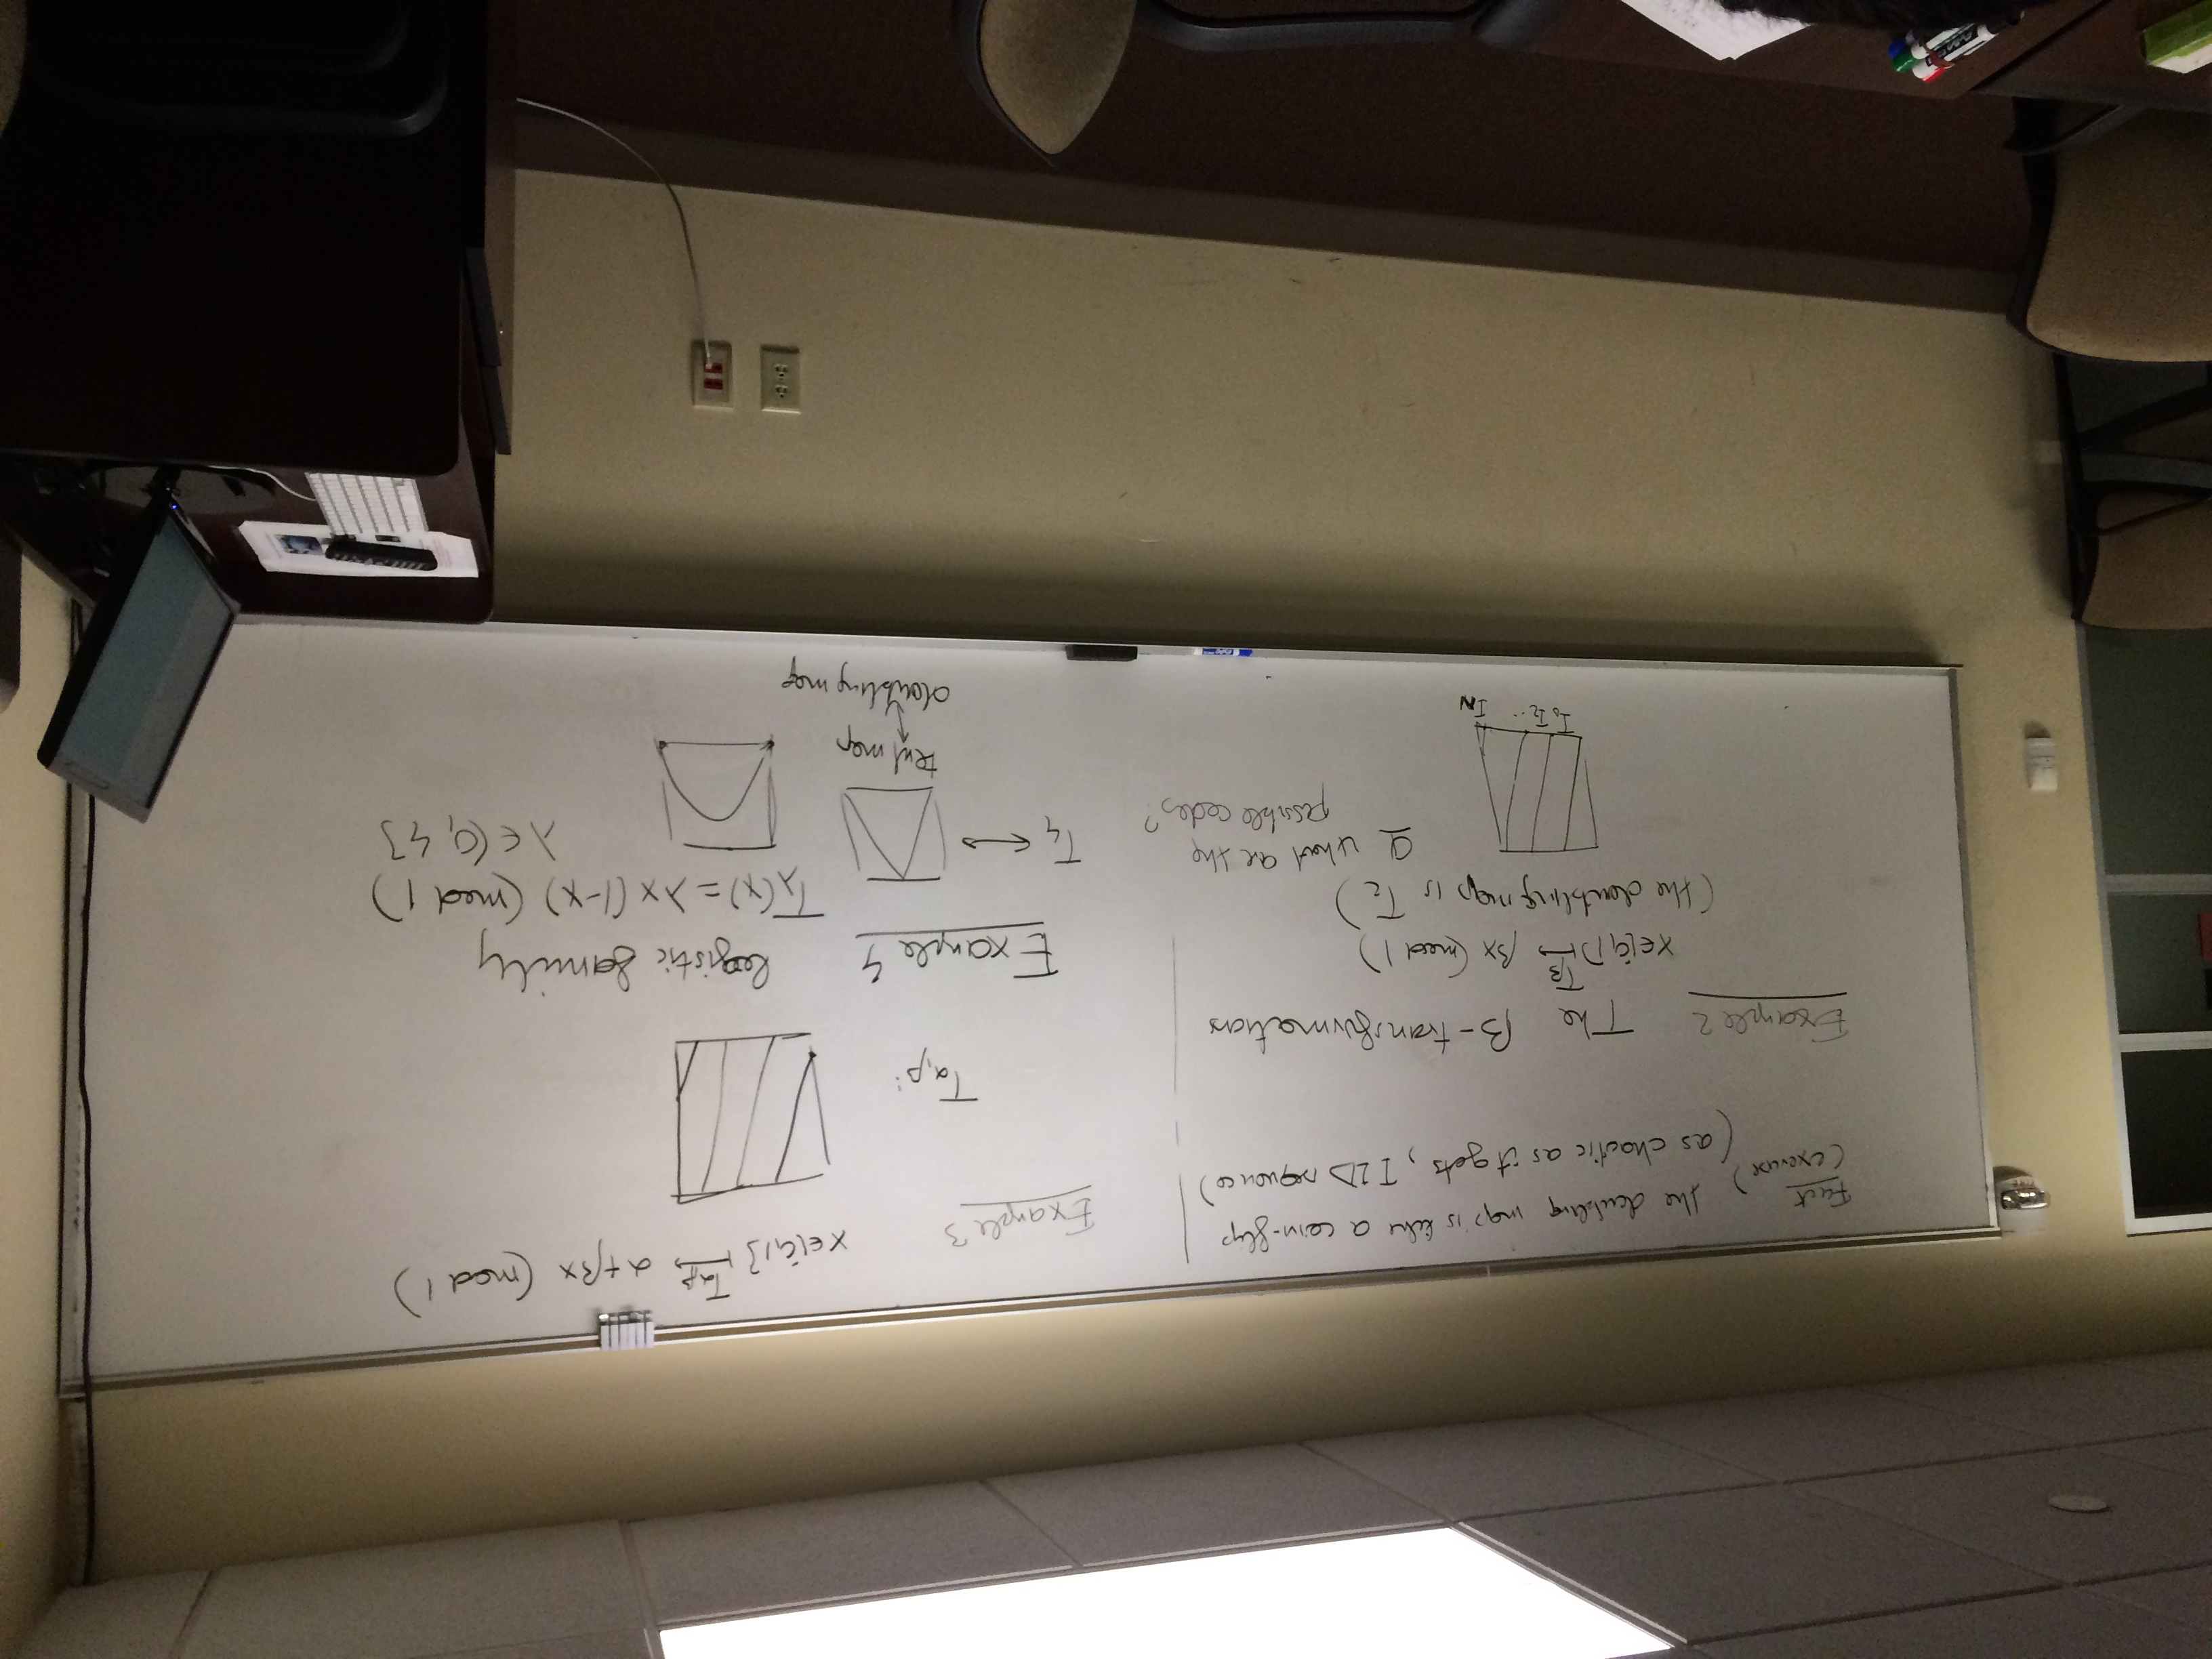 Fact the doubling map is like a coin-flip
(exercise) (as chaotic as it gets, IID sequence)
Example 2 The β-transformation
x∈[0,1) T_β ↦ βx (mod 1)
(the doubling map is T_2)
Q what are the
possible codes?
I_0 I_2 ... I_N
x∈[0,1] T_α,β ↦ α+βx (mod 1)
Example 3
T_α,β:
Example 4 Logistic family
T_λ(x) = λx(1-x) (mod 1)
λ∈(0,4]
T_4 ↔
tent map
↕
doubling map